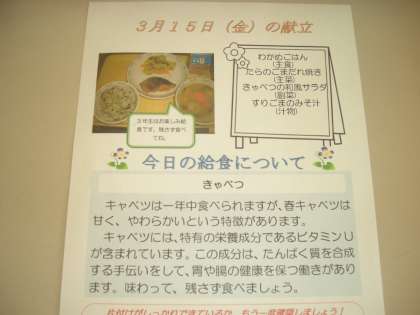 3月15日(金)の献立
わかめごはん
(主食)
たらのごまだれ焼き
(主菜)
きゃべつの和風サラダ
(副菜)
すりごまのみそ汁
(汁物)
3年生はお楽しみ給
食です。残さず食べ
てね。
今日の給食について
きゃべつ
キャベツは一年中食べられますが、春キャベツは
甘く、やわらかいという特徴があります。
キャベツには、特有の栄養成分であるビタミンU
が含まれています。この成分は、たんぱく質を合成
する手伝いをして、胃や腸の健康を保つ働きがあり
ます。味わって、残さず食べましょう。
片付けがしっかりできているか、もう一度確認しましょう!